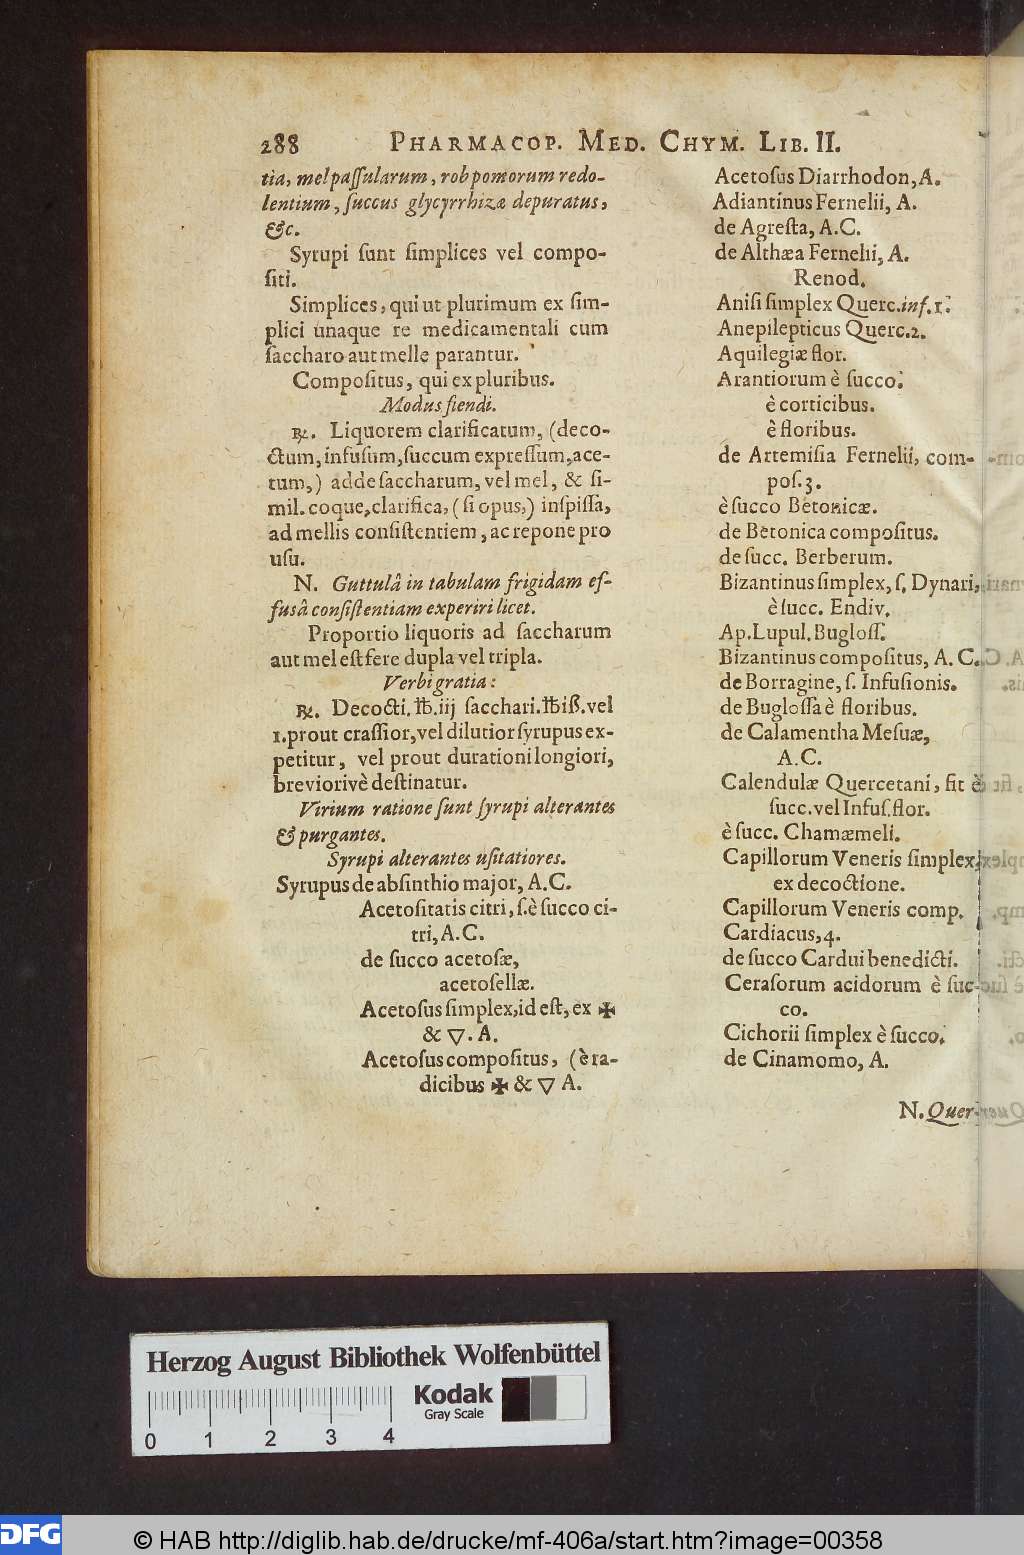 288 PHARMACOP. MED. CHYM. LIB. II.
tia, mel paſſularum, rob pomorum redo-
lentium, ſuccus glycyrrhizæ depuratus,
&c.
Syrupi ſunt ſimplices vel compo-
ſiti.
Simplices, qui ut plurimum ex ſim-
plici unaque re medicamentali cum
ſaccharo aut melle parantur.
Compoſitus, qui ex pluribus.
Modus fiendi.
℞. Liquorem clarificatum, (deco-
ctum, infuſum, ſuccum expreſſum, ace-
tum,) adde ſaccharum, vel mel, & ſi-
mil. coque, clarifica, (ſi opus,) inſpiſſa,
ad mellis conſiſtentiem, ac repone pro
uſu.
N. Guttulâ in tabulam frigidam ef-
fusâ conſiſtentiam experiri licet.
Proportio liquoris ad ſaccharum
aut mel eſt fere dupla vel tripla.
Verbi gratia:
℞. Decocti. ℔. iij ſacchari. ℔ iß. vel
1. prout craſſior, vel dilutior ſyrupus ex-
petitur, vel prout durationi longiori,
breviorivè deſtinatur.
Virium ratione ſunt ſyrupi alterantes
& purgantes.
Syrupi alterantes uſitatiores.
Syrupus de abſinthio major, A.C.
Acetoſitatis citri, ſ. è ſucco ci-
tri, A.C.
de ſucco acetoſæ,
acetoſellæ.
Acetoſus ſimplex, id eſt, ex ✠
& ▽. A.
Acetoſus compoſitus, (è ra-
dicibus ✠ & ▽ A.
Acetoſus Diarrhodon, A.
Adiantinus Fernelii, A.
de Agreſta, A.C.
de Althæa Fernelii, A.
Renod.
Aniſi ſimplex Querc. inf. 1.
Anepilepticus Querc. 2.
Aquilegiæ flor.
Arantiorum è ſucco.
è corticibus.
è floribus.
de Artemiſia Fernelii, com-
poſ. 3.
è ſucco Betonicæ.
de Betonica compoſitus.
de ſucc. Berberum.
Bizantinus ſimplex, ſ. Dynari,
è ſucc. Endiv.
Ap. Lupul. Bugloſſ.
Bizantinus compoſitus, A. C.
de Borragine, ſ. Infuſionis.
de Bugloſſa è floribus.
de Calamentha Meſuæ,
A.C.
Calendulæ Quercetani, fit è
ſucc. vel Infuſ. flor.
è ſucc. Chamæmeli.
Capillorum Veneris ſimplex,
ex decoctione.
Capillorum Veneris comp.
Cardiacus, 4.
de ſucco Cardui benedicti.
Ceraſorum acidorum è ſuc-
co.
Cichorii ſimplex è ſucco.
de Cinamomo, A.
N. Quer-
Herzog August Bibliothek Wolfenbüttel
Kodak
Gray Scale
0 1 2 3 4
DFG
© HAB http://diglib.hab.de/drucke/mf-406a/start.htm?image=00358